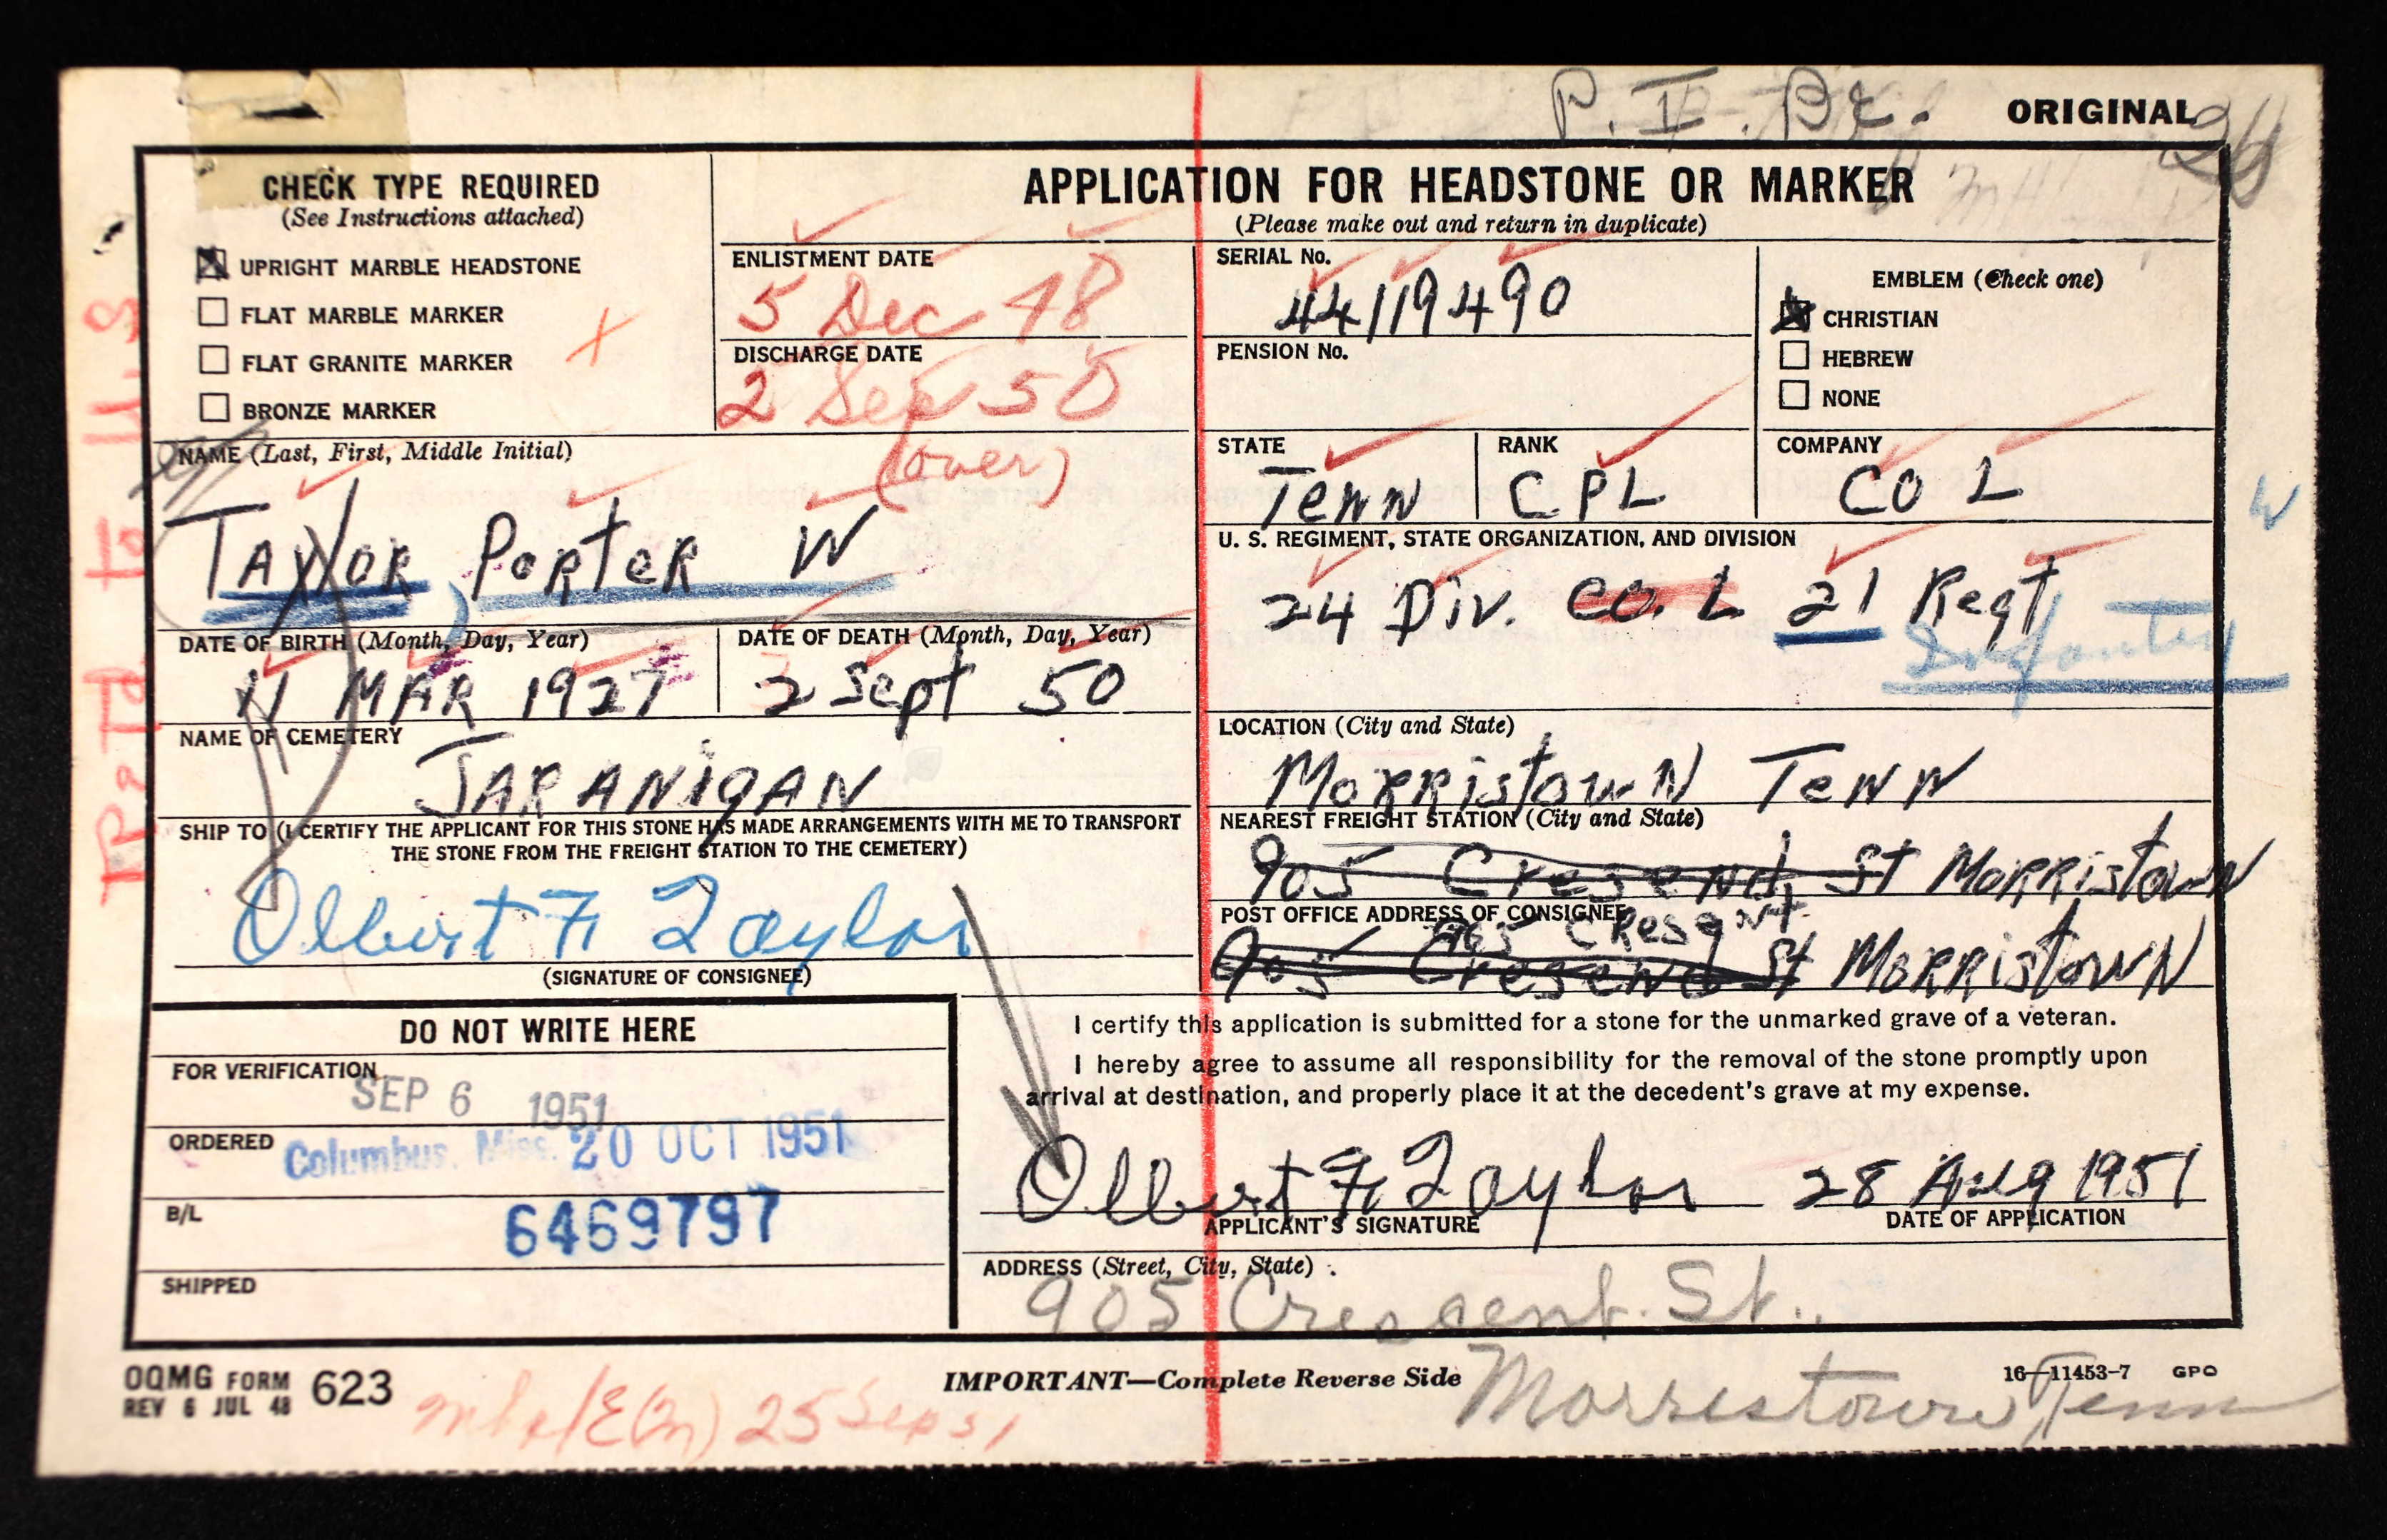 P. I. Br.
ORIGINAL
CHECK TYPE REQUIRED
(See Instructions attached)
UPRIGHT MARBLE HEADSTONE
FLAT MARBLE MARKER
FLAT GRANITE MARKER
BRONZE MARKER
APPLICATION FOR HEADSTONE OR MARKER
(Please make out and return in duplicate)
ENLISTMENT DATE
5 Dec 48
DISCHARGE DATE
2 Sep 50
(over)
SERIAL No.
44119490
PENSION No.
EMBLEM (Check one)
CHRISTIAN
HEBREW
NONE
NAME (Last, First, Middle Initial)
TAYLOR, PORTER W
STATE
TENN
RANK
CPL
COMPANY
CO L
W
U. S. REGIMENT, STATE ORGANIZATION, AND DIVISION
24 Div. Co. L 21 Regt
Infantry
DATE OF BIRTH (Month, Day, Year)
11 MAR 1927
DATE OF DEATH (Month, Day, Year)
2 Sept 50
NAME OF CEMETERY
JARANIGAN
LOCATION (City and State)
MORRISTOWN TENN
SHIP TO (I CERTIFY THE APPLICANT FOR THIS STONE HAS MADE ARRANGEMENTS WITH ME TO TRANSPORT
THE STONE FROM THE FREIGHT STATION TO THE CEMETERY)
Olbert F. Taylor
(SIGNATURE OF CONSIGNEE)
NEAREST FREIGHT STATION (City and State)
905 Cresend St MORRISTOWN
POST OFFICE ADDRESS OF CONSIGNEE
905 CResent
905 Cresend St MORRISTOWN
DO NOT WRITE HERE
FOR VERIFICATION
SEP 6 1951
ORDERED
Columbus, Miss. 20 OCT 1951
B/L
6469797
SHIPPED
I certify this application is submitted for a stone for the unmarked grave of a veteran.
I hereby agree to assume all responsibility for the removal of the stone promptly upon
arrival at destination, and properly place it at the decedent's grave at my expense.
Olbert F. Taylor 28 Aug 1951
APPLICANT'S SIGNATURE
DATE OF APPLICATION
ADDRESS (Street, City, State)
905 Crescent St.,
Morristown, Tenn
OQMG FORM 623
REV 6 JUL 48
IMPORTANT—Complete Reverse Side
16—11453-7 GPO
25 Sep 51